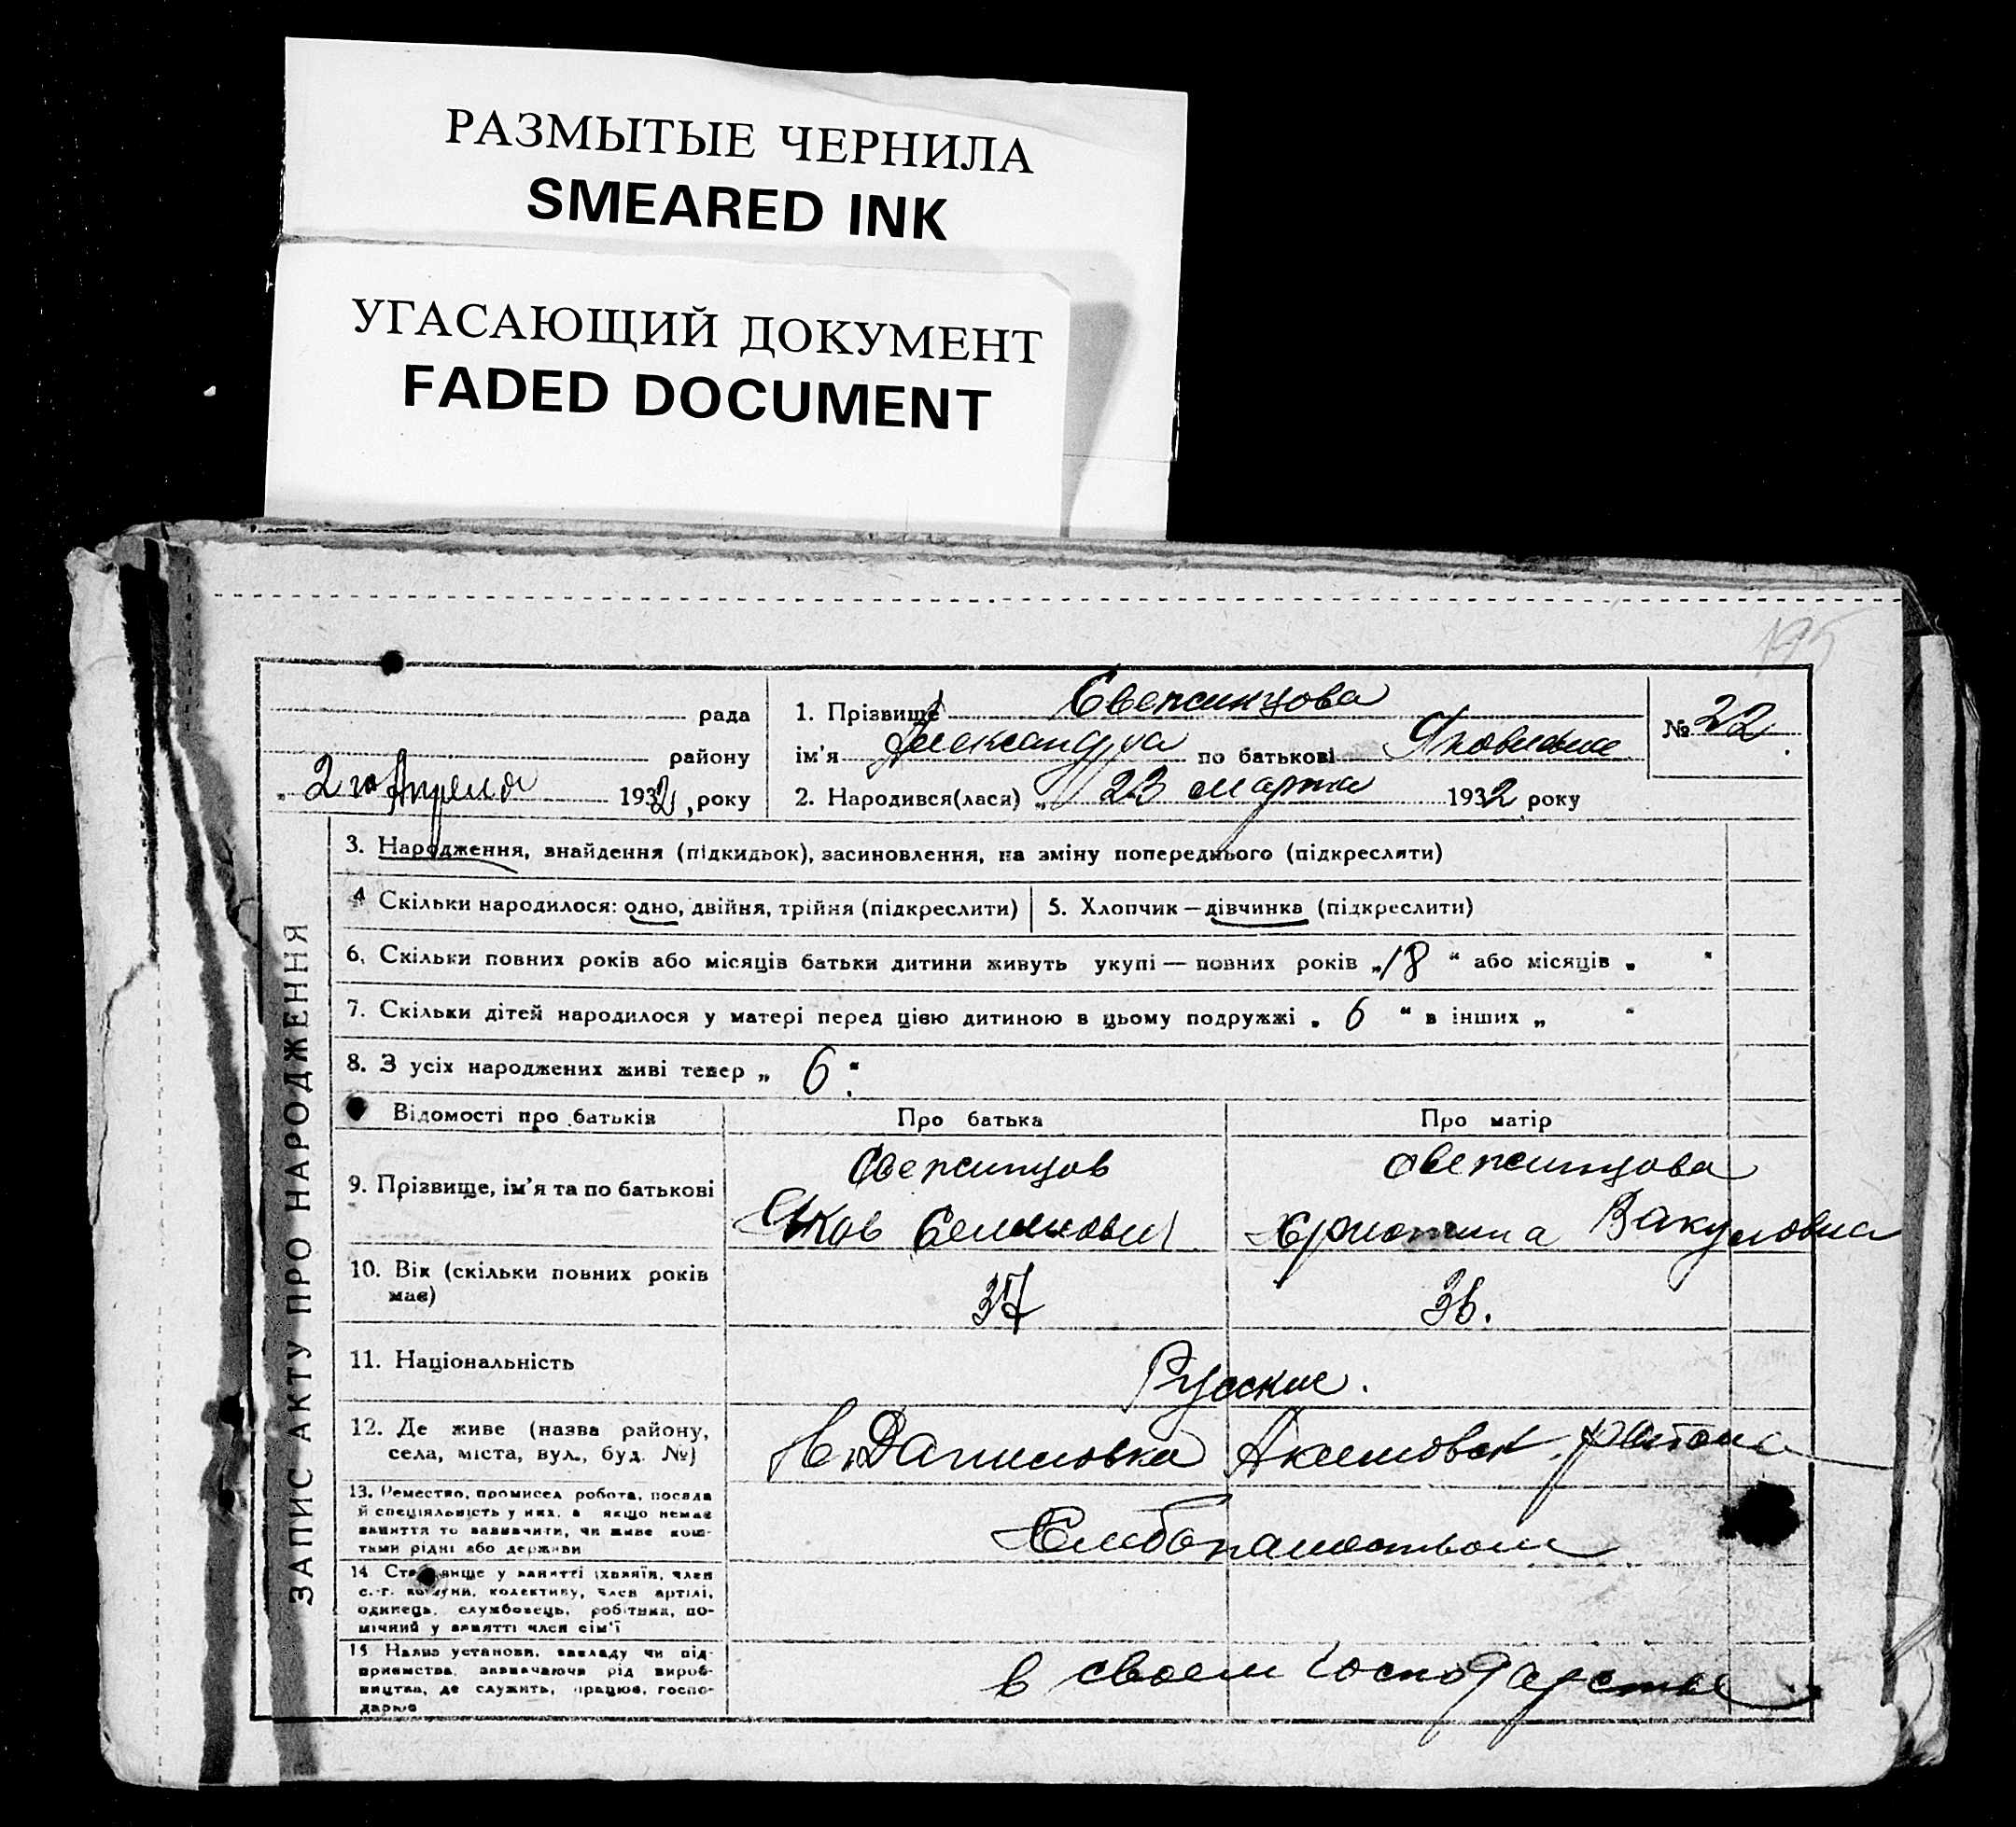 РАЗМЫТЫЕ ЧЕРНИЛА
SMEARED INK
УГАСАЮЩИЙ ДОКУМЕНТ
FADED DOCUMENT
195
рада
району
2го Апреля 1932 року
1. Прізвище Свежинцова
ім'я Александра по батькові Яковлевне
2. Народився(лася) „ 23 марта 1932 року
№ 22
ЗАПИС АКТУ ПРО НАРОДЖЕННЯ
3. Народження, знайдення (підкидьок), засиновлення, на зміну попереднього (підкреслити)
4 Скільки народилося: одно, двійня, трійня (підкреслити)
5. Хлопчик — дівчинка (підкреслити)
6. Скільки повних років або місяців батьки дитини живуть укупі — повних років „18“ або місяців „ “
7. Скільки дітей народилося у матері перед цією дитиною в цьому подружжі „ 6 “ в інших „ “
8. З усіх народжених живі тепер „ 6 “
Відомості про батьків
Про батька
Про матір
9. Прізвище, ім'я та по батькові
Свежинцов
Яков Семенович
Свежинцова
Христина Вакуловна
10. Вік (скільки повних років
має)
37
36.
11. Національність
Русские.
12. Де живе (назва району,
села, міста, вул., буд. №)
Н. Даниловка Акимовск. района
13. Ремество, промисел, робота, посада
й спеціяльність у них, а якщо немає
заняття то зазначити, чи живе кош-
тами рідні або держави
Хлебопашеством
14 Становище у занятті (хазяїн, член
с.-г. комуни, колективу, член артілі,
одинець, службовець, робітник, по-
мічний у занятті член сім'ї
15 Назва установи, закладу чи під-
приємства, зазначаючи рід вироб-
ництва, де служить, працює, госпо-
дарює
в своем господарстве